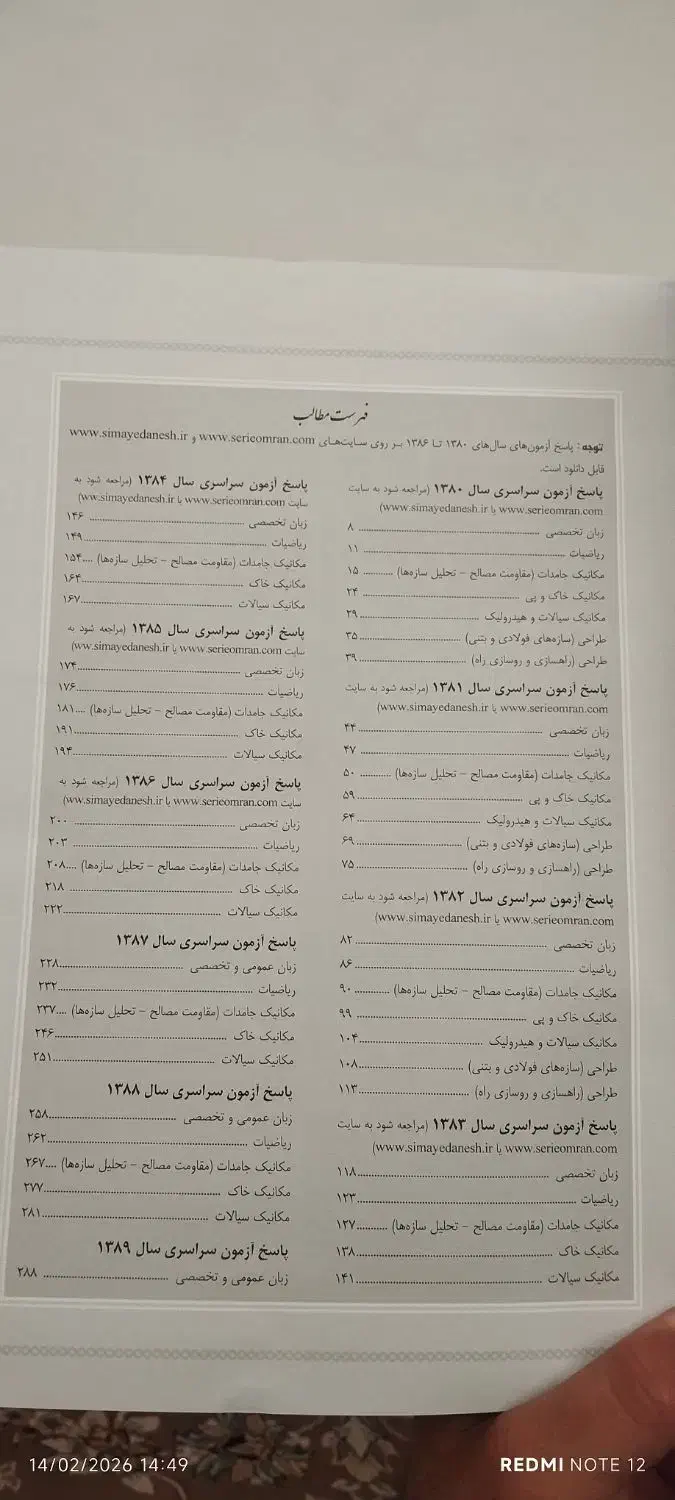 فهرست مطالب
توجه: پاسخ آزمون‌های سال‌های ۱۳۸۰ تا ۱۳۸۶ بر روی سایت‌های www.serieomran.com و www.simayedanesh.ir
قابل دانلود است.
پاسخ آزمون سراسری سال ۱۳۸۰ (مراجعه شود به سایت
www.serieomran.com یا www.simayedanesh.ir)
زبان تخصصی ........ ۸
ریاضیات ........ ۱۱
مکانیک جامدات (مقاومت مصالح – تحلیل سازه‌ها) ........ ۱۵
مکانیک خاک و پی ........ ۲۴
مکانیک سیالات و هیدرولیک ........ ۲۹
طراحی (سازه‌های فولادی و بتنی) ........ ۳۵
طراحی (راهسازی و روسازی راه) ........ ۳۹
پاسخ آزمون سراسری سال ۱۳۸۱ (مراجعه شود به سایت
www.serieomran.com یا www.simayedanesh.ir)
زبان تخصصی ........ ۴۴
ریاضیات ........ ۴۷
مکانیک جامدات (مقاومت مصالح – تحلیل سازه‌ها) ........ ۵۰
مکانیک خاک و پی ........ ۵۹
مکانیک سیالات و هیدرولیک ........ ۶۴
طراحی (سازه‌های فولادی و بتنی) ........ ۶۹
طراحی (راهسازی و روسازی راه) ........ ۷۵
پاسخ آزمون سراسری سال ۱۳۸۲ (مراجعه شود به سایت
www.serieomran.com یا www.simayedanesh.ir)
زبان تخصصی ........ ۸۲
ریاضیات ........ ۸۶
مکانیک جامدات (مقاومت مصالح – تحلیل سازه‌ها) ........ ۹۰
مکانیک خاک و پی ........ ۹۹
مکانیک سیالات و هیدرولیک ........ ۱۰۴
طراحی (سازه‌های فولادی و بتنی) ........ ۱۰۸
طراحی (راهسازی و روسازی راه) ........ ۱۱۳
پاسخ آزمون سراسری سال ۱۳۸۳ (مراجعه شود به سایت
www.serieomran.com یا www.simayedanesh.ir)
زبان تخصصی ........ ۱۱۸
ریاضیات ........ ۱۲۳
مکانیک جامدات (مقاومت مصالح – تحلیل سازه‌ها) ........ ۱۲۷
مکانیک خاک ........ ۱۳۸
مکانیک سیالات ........ ۱۴۱
پاسخ آزمون سراسری سال ۱۳۸۴ (مراجعه شود به
سایت www.serieomran.com یا ww.simayedanesh.ir)
زبان تخصصی ........ ۱۴۶
ریاضیات ........ ۱۴۹
مکانیک جامدات (مقاومت مصالح – تحلیل سازه‌ها) .... ۱۵۴
مکانیک خاک ........ ۱۶۴
مکانیک سیالات ........ ۱۶۷
پاسخ آزمون سراسری سال ۱۳۸۵ (مراجعه شود به
سایت www.serieomran.com یا ww.simayedanesh.ir)
زبان تخصصی ........ ۱۷۴
ریاضیات ........ ۱۷۶
مکانیک جامدات (مقاومت مصالح – تحلیل سازه‌ها) .... ۱۸۱
مکانیک خاک ........ ۱۹۱
مکانیک سیالات ........ ۱۹۴
پاسخ آزمون سراسری سال ۱۳۸۶ (مراجعه شود به
سایت www.serieomran.com یا ww.simayedanesh.ir)
زبان تخصصی ........ ۲۰۰
ریاضیات ........ ۲۰۳
مکانیک جامدات (مقاومت مصالح – تحلیل سازه‌ها) .... ۲۰۸
مکانیک خاک ........ ۲۱۸
مکانیک سیالات ........ ۲۲۲
پاسخ آزمون سراسری سال ۱۳۸۷
زبان عمومی و تخصصی ........ ۲۲۸
ریاضیات ........ ۲۳۲
مکانیک جامدات (مقاومت مصالح – تحلیل سازه‌ها) .... ۲۳۷
مکانیک خاک ........ ۲۴۶
مکانیک سیالات ........ ۲۵۱
پاسخ آزمون سراسری سال ۱۳۸۸
زبان عمومی و تخصصی ........ ۲۵۸
ریاضیات ........ ۲۶۲
مکانیک جامدات (مقاومت مصالح – تحلیل سازه‌ها) .... ۲۶۷
مکانیک خاک ........ ۲۷۷
مکانیک سیالات ........ ۲۸۱
پاسخ آزمون سراسری سال ۱۳۸۹
زبان عمومی و تخصصی ........ ۲۸۸
14/02/2026 14:49
REDMI NOTE 12